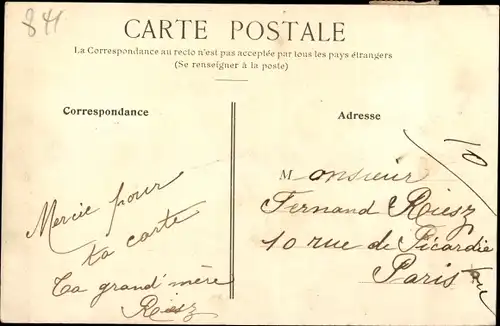 841
CARTE POSTALE
La Correspondance au recto n'est pas acceptée par tous les pays étrangers
(Se renseigner à la poste)
Correspondance
Adresse
10
Monsieur
Fernand Riesz
10 rue de Picardie
Paris
Mercie pour
ta carte
Ta grand'mère
Riesz